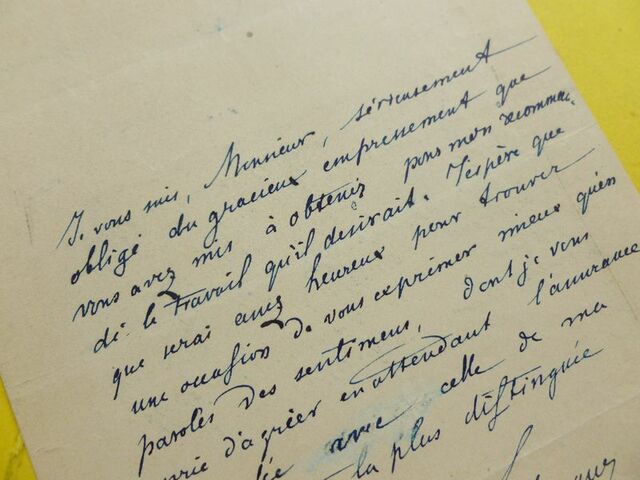 Je vous suis, Monsieur, sérieusement
obligé du gracieux empressement que
vous avez mis à obtenir pour mon recomman-
dé le travail qu'il desirait. J'espère que
que serai assez heureux pour trouver
une occasion de vous exprimer mieux qu'en
paroles des sentimens, dont je vous
prie d'agréer en attendant l'assurance
avec celle de ma
la plus distinguée